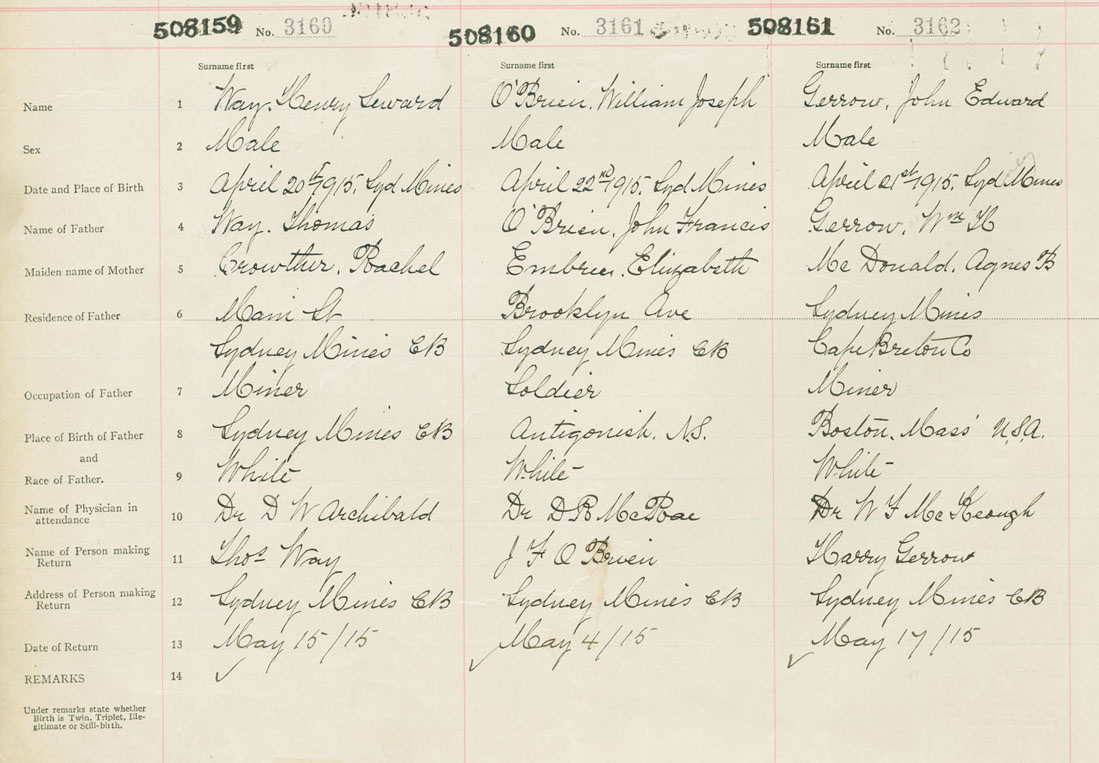 508159 No. 3160 508160 No. 3161 508161 No. 3162
Surname first Surname first Surname first
Name 1 Way, Henry Seward O'Brien, William Joseph Gerrow, John Edward
Sex 2 Male Male Male
Date and Place of Birth 3 April 20th 1915, Syd Mines April 22nd 1915, Syd Mines April 21st 1915, Syd Mines
Name of Father 4 Way, Thomas O'Brien, John Francis Gerrow, Wm H
Maiden name of Mother 5 Crowther, Rachel Embree, Elizabeth Mc Donald, Agnes B
Residence of Father 6 Main St Brooklyn Ave Sydney Mines
Sydney Mines CB Sydney Mines CB Cape Breton Co
Occupation of Father 7 Miner Soldier Miner
Place of Birth of Father 8 Sydney Mines CB Antigonish, N.S. Boston, Mass' U.S.A.
and
Race of Father. 9 White White White
Name of Physician in
attendance 10 Dr D W Archibald Dr D R McRae Dr W F Mc Keough
Name of Person making
Return 11 Thos Way J F O'Brien Harry Gerrow
Address of Person making
Return 12 Sydney Mines CB Sydney Mines CB Sydney Mines CB
Date of Return 13 May 15/15 May 4/15 May 17/15
REMARKS 14 ✓ ✓ ✓
Under remarks state whether
Birth is Twin, Triplet, Ille-
gitimate or Still-birth.